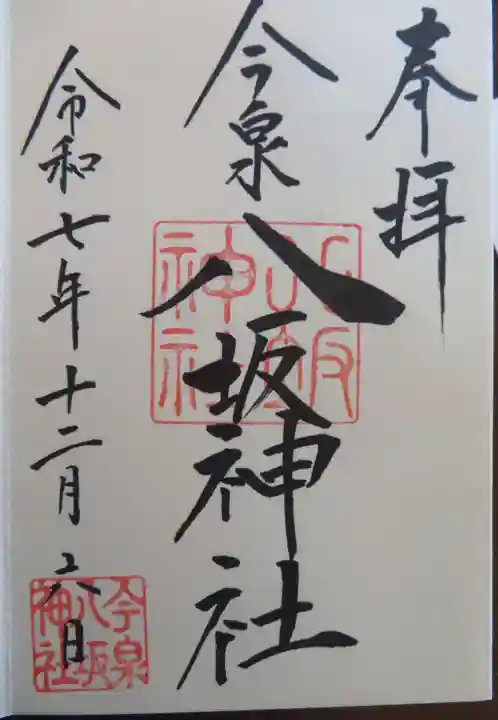 奉拝
今泉八坂神社
八坂神社
令和七年十二月六日
今泉八坂神社